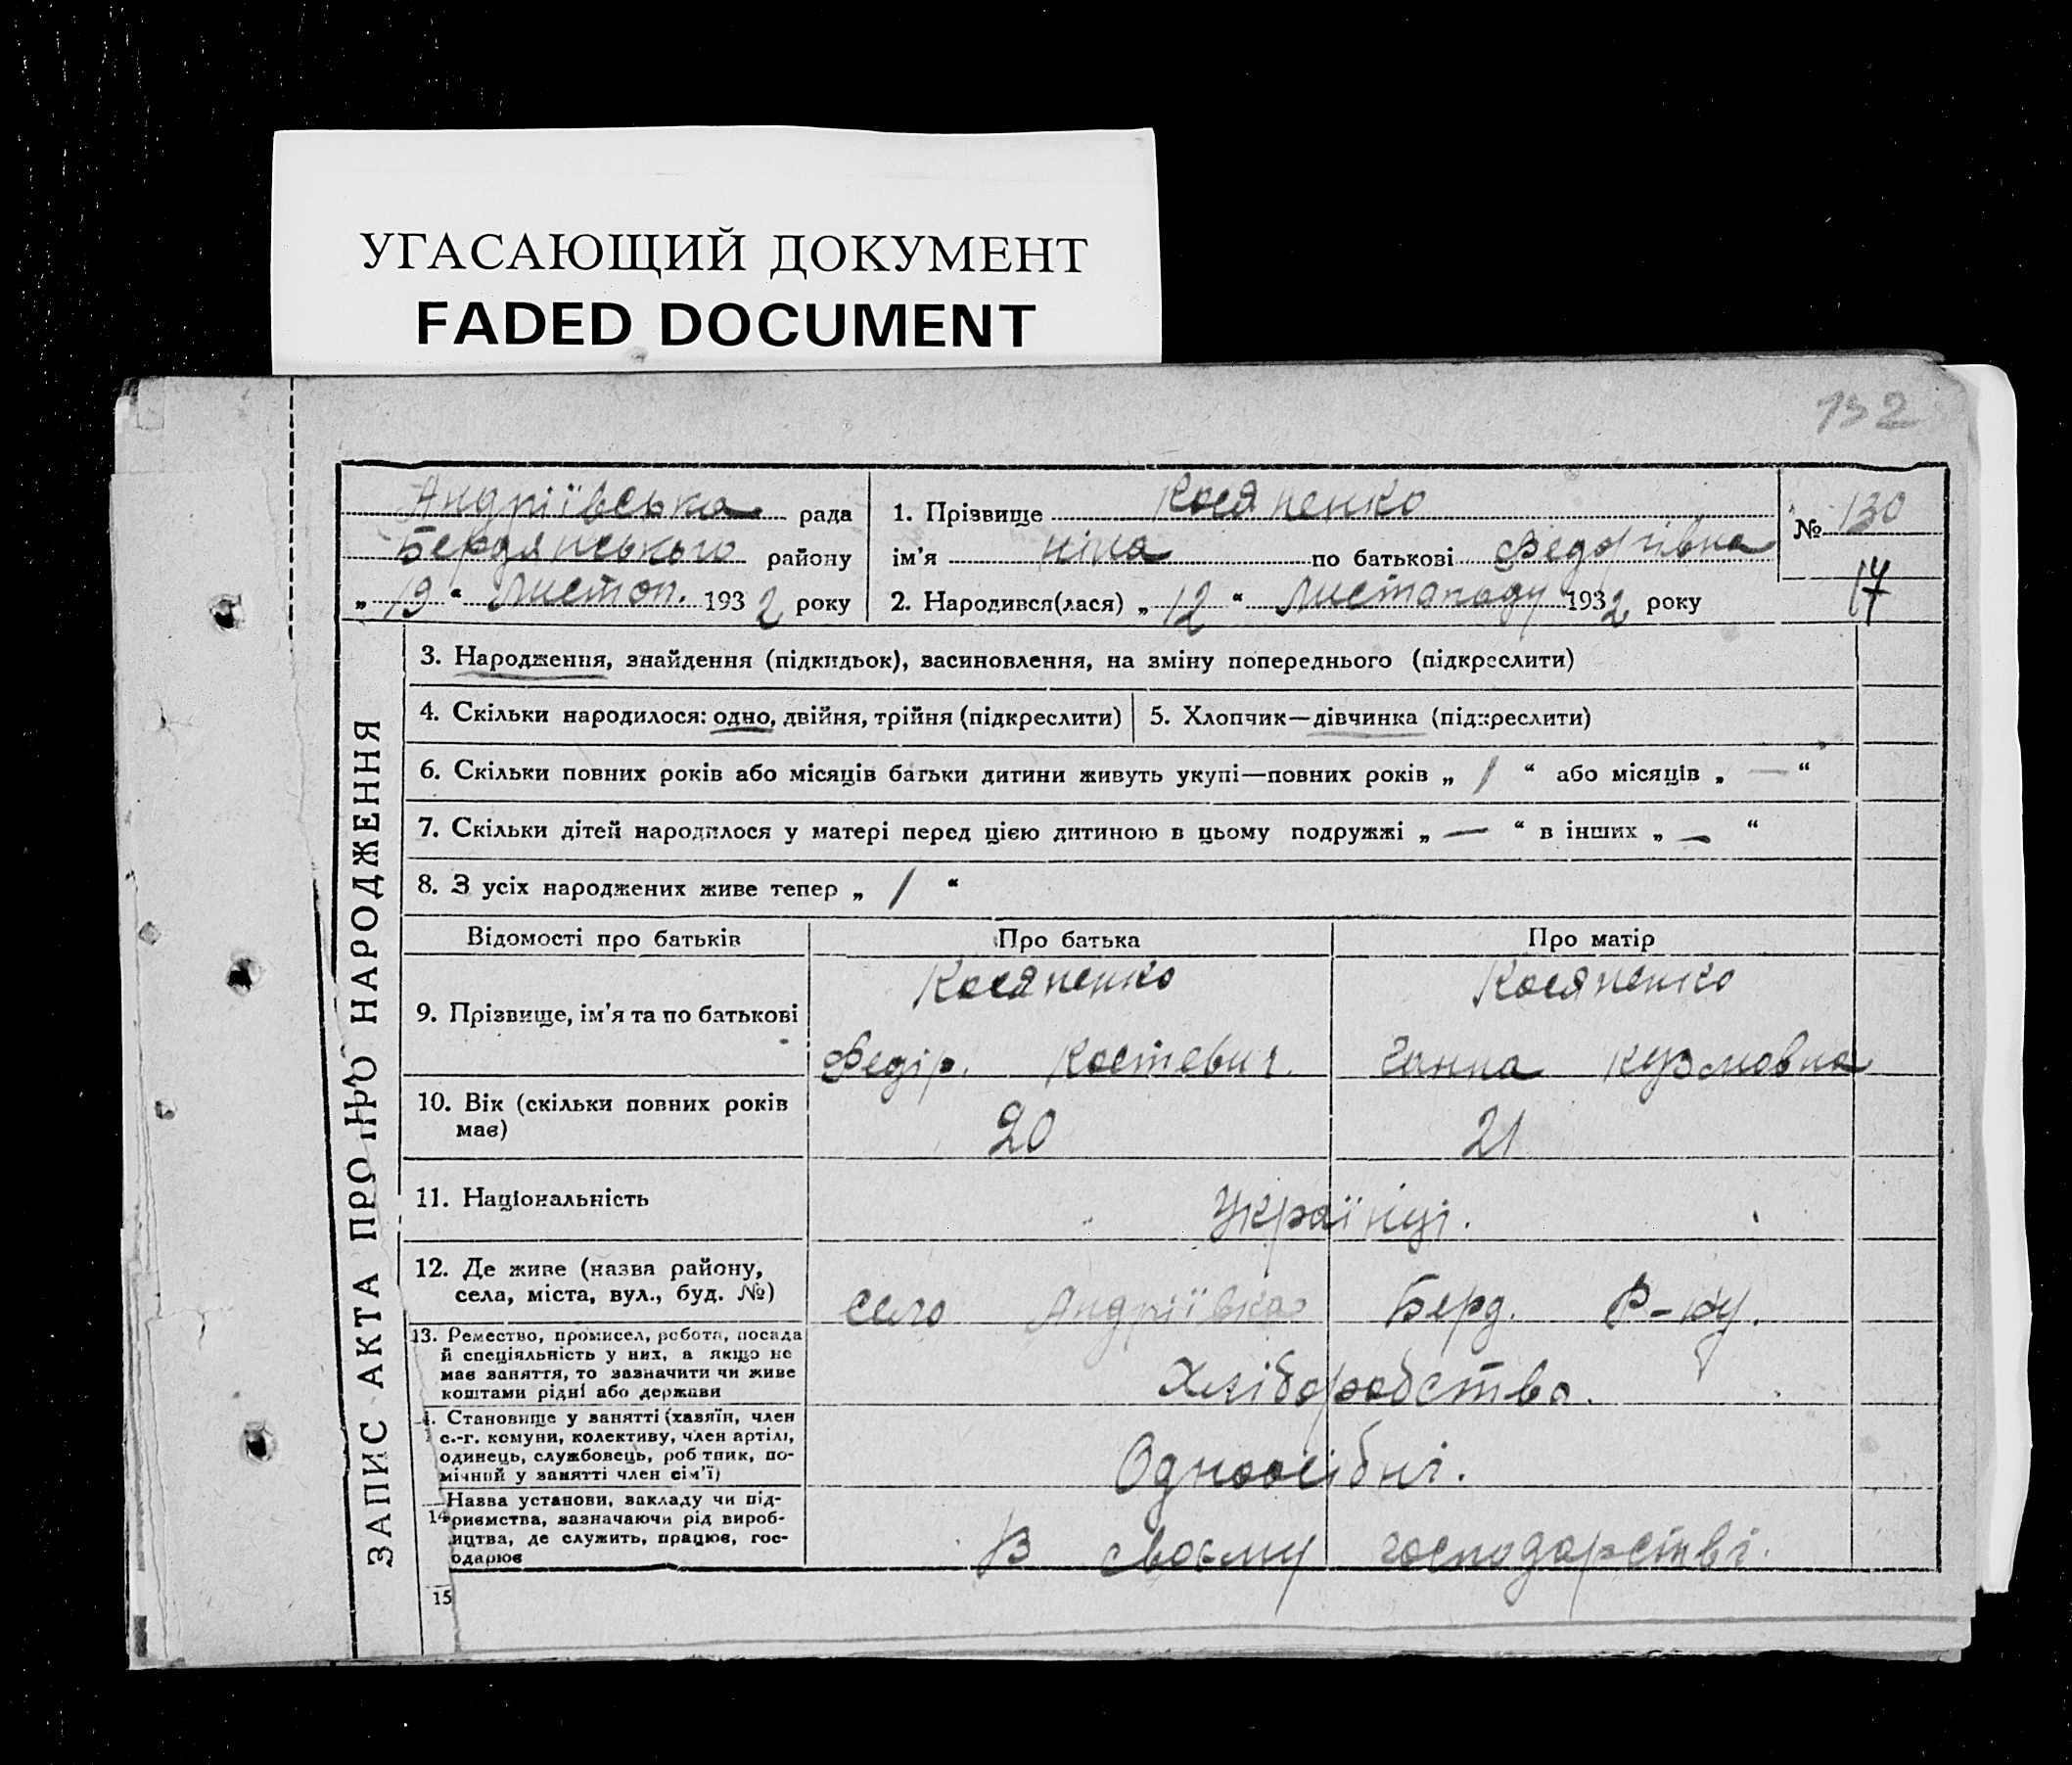 УГАСАЮЩИЙ ДОКУМЕНТ
FADED DOCUMENT
132
Андріївська рада
Бердянського району
„ 19 “ Листоп. 1932 року
1. Прізвище Косяненко
ім’я Ніна по батькові Федорівна
2. Народився(лася) „ 12 “ Листопаду 1932 року
№ 130
17
ЗАПИС АКТА ПРО ПРО НАРОДЖЕННЯ
3. Народження, знайдення (підкидьок), засиновлення, на зміну попереднього (підкреслити)
4. Скільки народилося: одно, двійня, трійня (підкреслити) 5. Хлопчик—дівчинка (підкреслити)
6. Скільки повних років або місяців батьки дитини живуть укупі—повних років „ / “ або місяців „ — “
7. Скільки дітей народилося у матері перед цією дитиною в цьому подружжі „ — “ в інших „ — “
8. З усіх народжених живе тепер „ / “
Відомості про батьків Про батька Про матір
9. Прізвище, ім’я та по батькові
Косяненко Косяненко
Федір. Костевич. Ганна Кузмовна
10. Вік (скільки повних років
має)
20 21
11. Національність
Українці.
12. Де живе (назва району,
села, міста, вул., буд. №)
село Андріївка Берд. Р-ну.
13. Ремество, промисел, робота, посада
й спеціяльність у них, а якщо не
має заняття, то зазначити чи живе
коштами рідні або держави
Хліборобство.
. Становище у занятті (хазяїн, член
с.-г. комуни, колективу, член артілі,
одинець, службовець, роб тник, по-
мічний у занятті член сім’ї)
Одноосібні.
14
Назва установи, закладу чи під-
риємства, зазначаючи рід вироб-
ицтва, де служить, працює, гос-
одарює
В своєму господарстві.
15